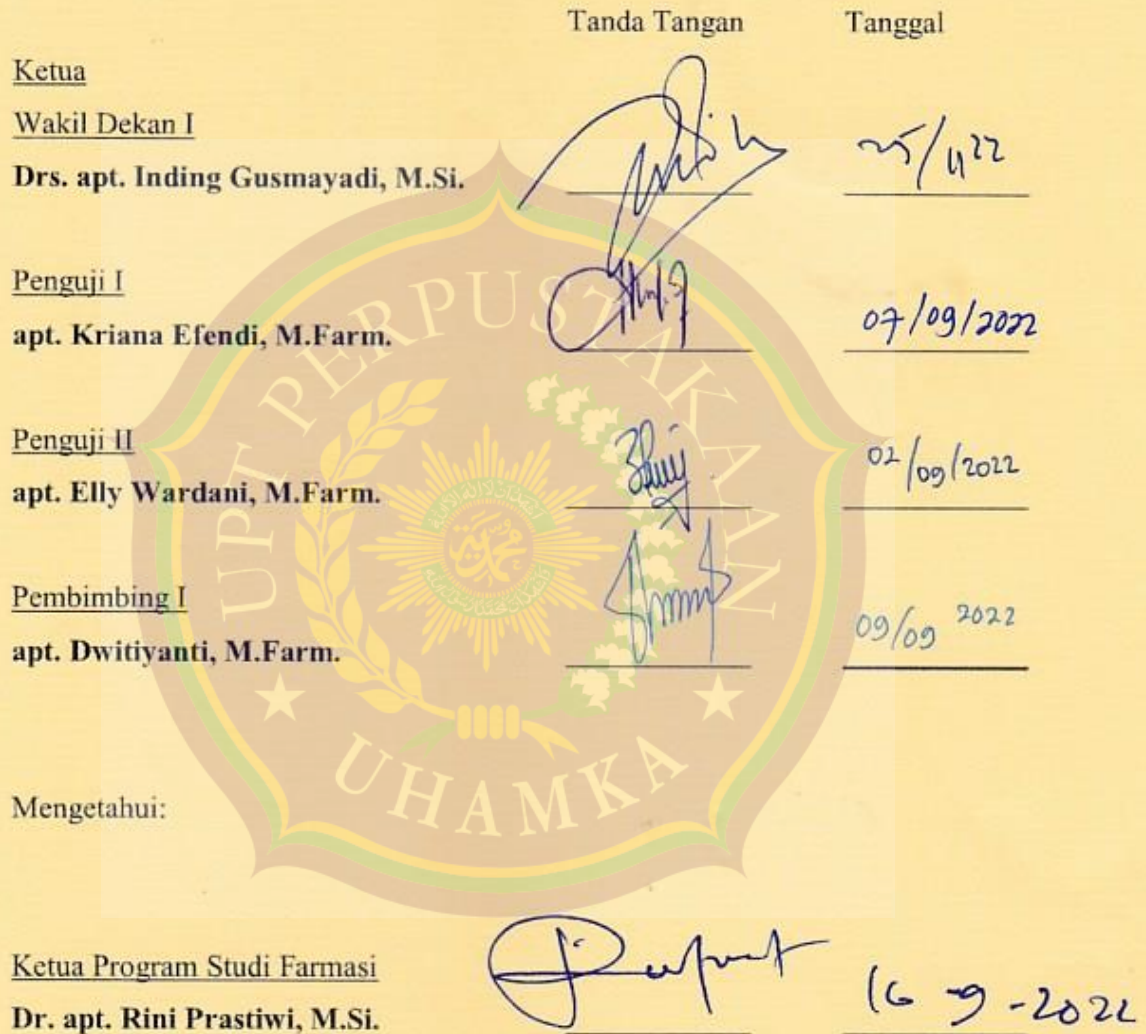 Tanda Tangan Tanggal
Ketua
Wakil Dekan I
Drs. apt. Inding Gusmayadi, M.Si. 25/11 22
Penguji I
apt. Kriana Efendi, M.Farm. 07/09/2022
Penguji II
apt. Elly Wardani, M.Farm. 02/09/2022
Pembimbing I
apt. Dwitiyanti, M.Farm. 09/09 2022
Mengetahui:
Ketua Program Studi Farmasi
Dr. apt. Rini Prastiwi, M.Si. 16-9-2022
UPT PERPUSTAKAAN
UHAMKA